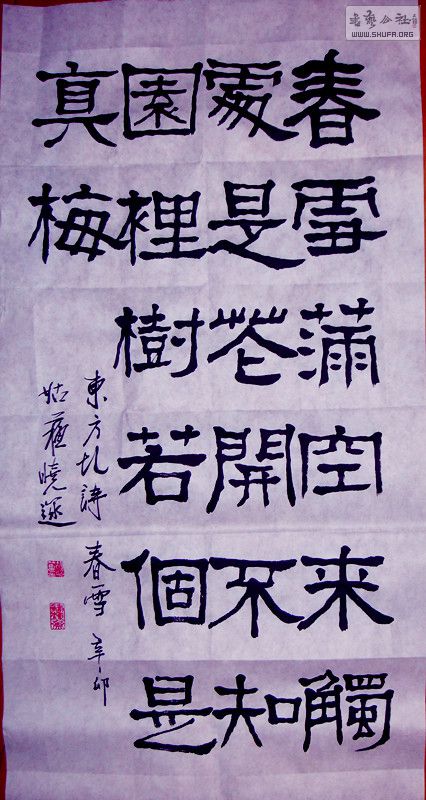 春雪滿空来觸
處是花開不知
園裡樹若個是
真梅
東方虬詩 春雪 辛卯
姑蘇曉
書藝公社
WWW.SHUFA.ORG